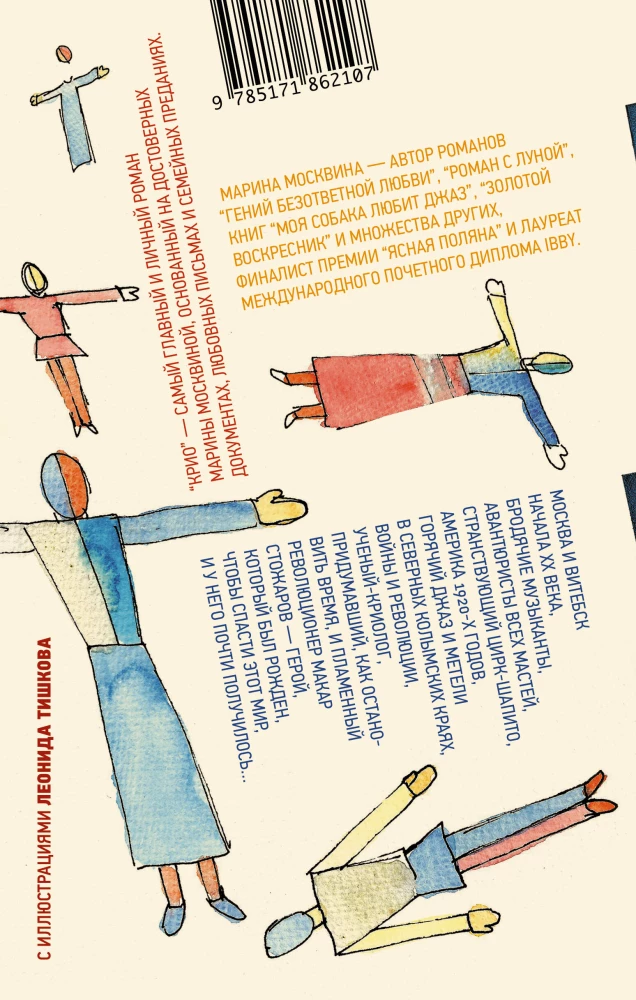 9 785171 862107
МАРИНА МОСКВИНА — АВТОР РОМАНОВ
“ГЕНИЙ БЕЗОТВЕТНОЙ ЛЮБВИ”, “РОМАН С ЛУНОЙ”,
КНИГ “МОЯ СОБАКА ЛЮБИТ ДЖАЗ”, “ЗОЛОТОЙ
ВОСКРЕСНИК” И МНОЖЕСТВА ДРУГИХ,
ФИНАЛИСТ ПРЕМИИ “ЯСНАЯ ПОЛЯНА” И ЛАУРЕАТ
МЕЖДУНАРОДНОГО ПОЧЕТНОГО ДИПЛОМА IBBY.
“КРИО” — САМЫЙ ГЛАВНЫЙ И ЛИЧНЫЙ РОМАН
МАРИНЫ МОСКВИНОЙ, ОСНОВАННЫЙ НА ДОСТОВЕРНЫХ
ДОКУМЕНТАХ, ЛЮБОВНЫХ ПИСЬМАХ И СЕМЕЙНЫХ ПРЕДАНИЯХ.
МОСКВА И ВИТЕБСК
НАЧАЛА XX ВЕКА,
БРОДЯЧИЕ МУЗЫКАНТЫ,
АВАНТЮРИСТЫ ВСЕХ МАСТЕЙ,
СТРАНСТВУЮЩИЙ ЦИРК-ШАПИТО,
АМЕРИКА 1920-Х ГОДОВ,
ГОРЯЧИЙ ДЖАЗ И МЕТЕЛИ
В СЕВЕРНЫХ КОЛЫМСКИХ КРАЯХ,
ВОЙНЫ И РЕВОЛЮЦИИ,
УЧЕНЫЙ-КРИОЛОГ,
ПРИДУМАВШИЙ, КАК ОСТАНО-
ВИТЬ ВРЕМЯ, И ПЛАМЕННЫЙ
РЕВОЛЮЦИОНЕР МАКАР
СТОЖАРОВ — ГЕРОЙ,
КОТОРЫЙ БЫЛ РОЖДЕН,
ЧТОБЫ СПАСТИ ЭТОТ МИР,
И У НЕГО ПОЧТИ ПОЛУЧИЛОСЬ...
С ИЛЛЮСТРАЦИЯМИ ЛЕОНИДА ТИШКОВА